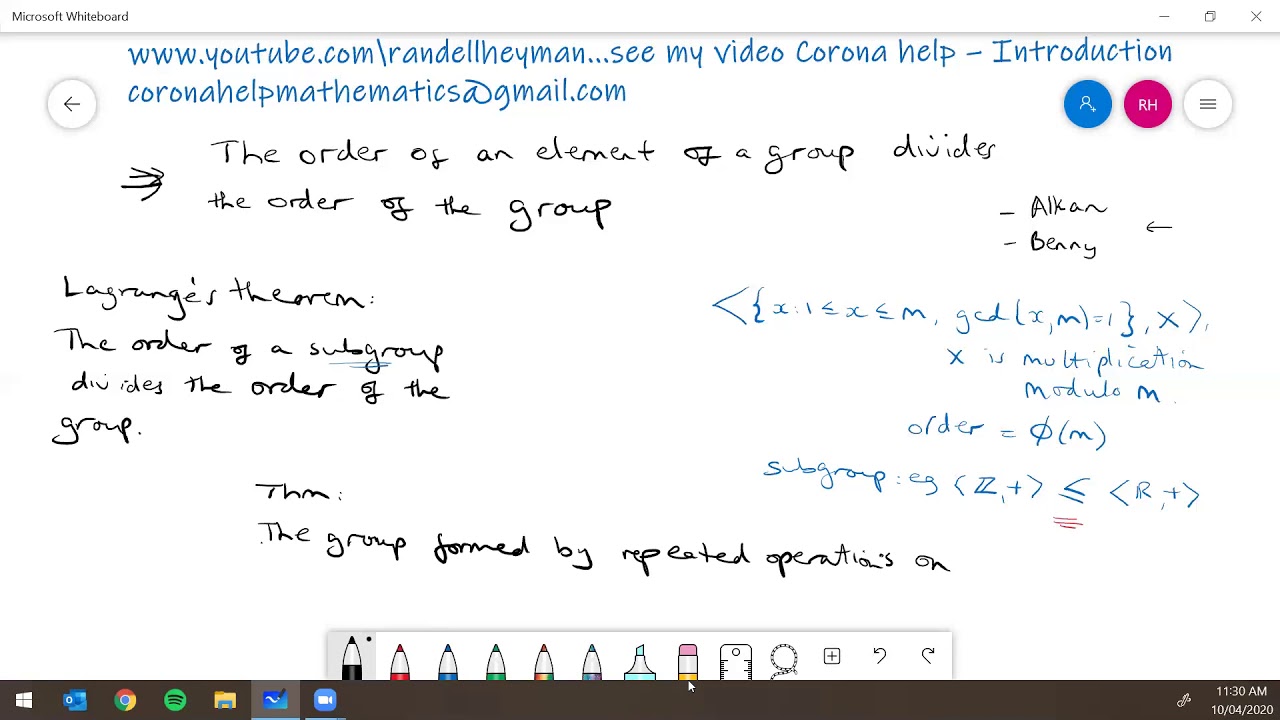 Microsoft Whiteboard
www.youtube.com\randellheyman...see my video Corona help – Introduction
coronahelpmathematics@gmail.com
RH
The order of an element of a group divides
the order of the group
- Alkan
- Benny
Lagrange's theorem:
The order of a subgroup
divides the order of the
group.
<{x: 1 ≤ x ≤ m, gcd(x,m)=1}, X>,
X is multiplication
modulo m.
order = φ(m)
subgroup: eg <ℤ,+> ≤ <ℝ,+>
Thm:
The group formed by repeated operations on
11:30 AM
10/04/2020